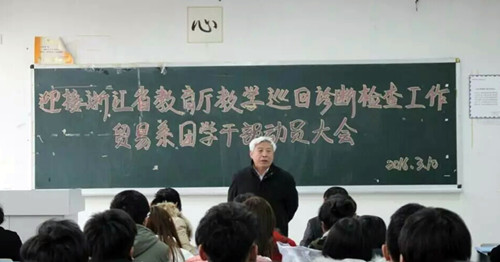 心
迎接浙江省教育厅教学巡回诊断检查工作
贸易系团学干部动员大会
2016.3.10